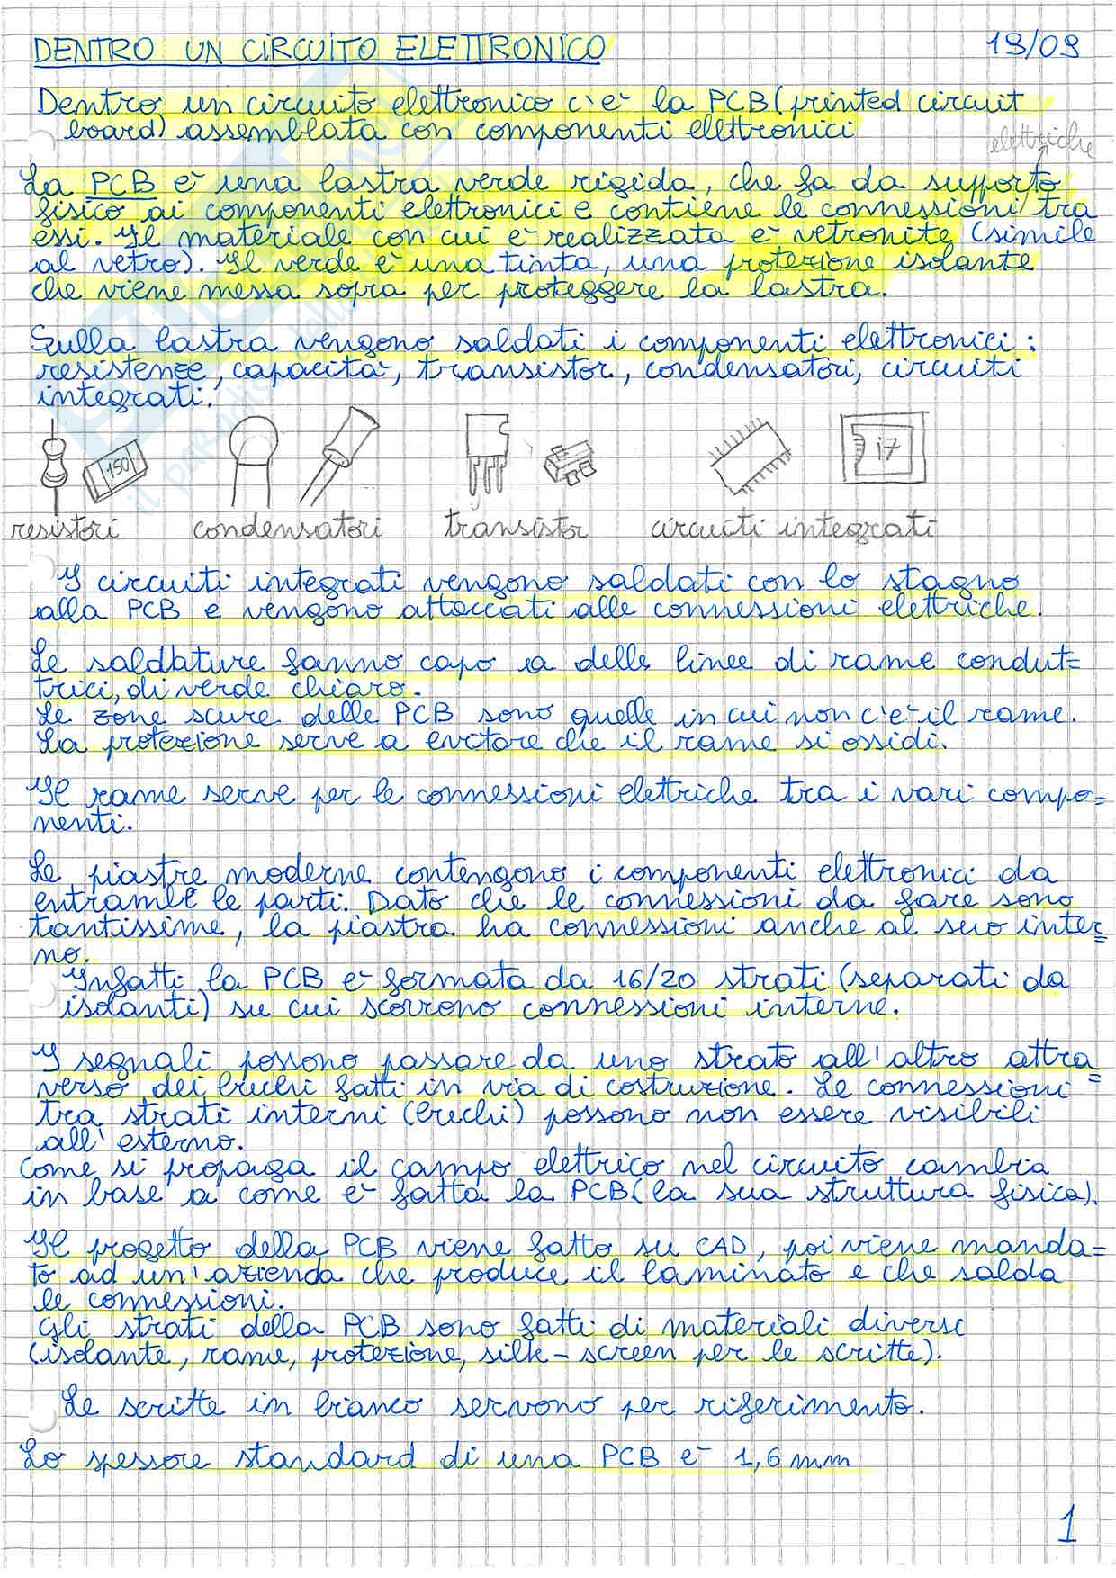 DENTRO UN CIRCUITO ELETTRONICO 19/09
Dentro un circuito elettronico c'è la PCB (printed circuit
board) assemblata con componenti elettronici
elettriche
La PCB è una lastra verde rigida, che fa da supporto
fisico ai componenti elettronici e contiene le connessioni tra
essi. Il materiale con cui è realizzata è vetronite (simile
al vetro). Il verde è una tinta, una protezione isolante
che viene messa sopra per proteggere la lastra.
Sulla lastra vengono saldati i componenti elettronici:
resistenze, capacità, transistor, condensatori, circuiti
integrati.
150
i7
resistori condensatori transistor circuiti integrati
I circuiti integrati vengono saldati con lo stagno
alla PCB e vengono attaccati alle connessioni elettriche.
Le saldature fanno capo a delle linee di rame condut=
trici, di verde chiaro.
Le zone scure delle PCB sono quelle in cui non c'è il rame.
La protezione serve a evitare che il rame si ossidi.
Il rame serve per le connessioni elettriche tra i vari compo=
nenti.
Le piastre moderne contengono i componenti elettronici da
entrambe le parti. Dato che le connessioni da fare sono
tantissime, la piastra ha connessioni anche al suo inter=
no.
Infatti la PCB è formata da 16/20 strati (separati da
isolanti) su cui scorrono connessioni interne.
I segnali possono passare da uno strato all'altro attra=
verso dei buchi fatti in via di costruzione. Le connessioni
tra strati interni (buchi) possono non essere visibili
all'esterno.
Come si propaga il campo elettrico nel circuito cambia
in base a come è fatta la PCB (la sua struttura fisica).
Il progetto della PCB viene fatto su CAD, poi viene manda=
to ad un'azienda che produce il laminato e che salda
le connessioni.
Gli strati della PCB sono fatti di materiali diversi
(isolante, rame, protezione, silk-screen per le scritte).
Le scritte in bianco servono per riferimento.
Lo spessore standard di una PCB è 1,6 mm
1